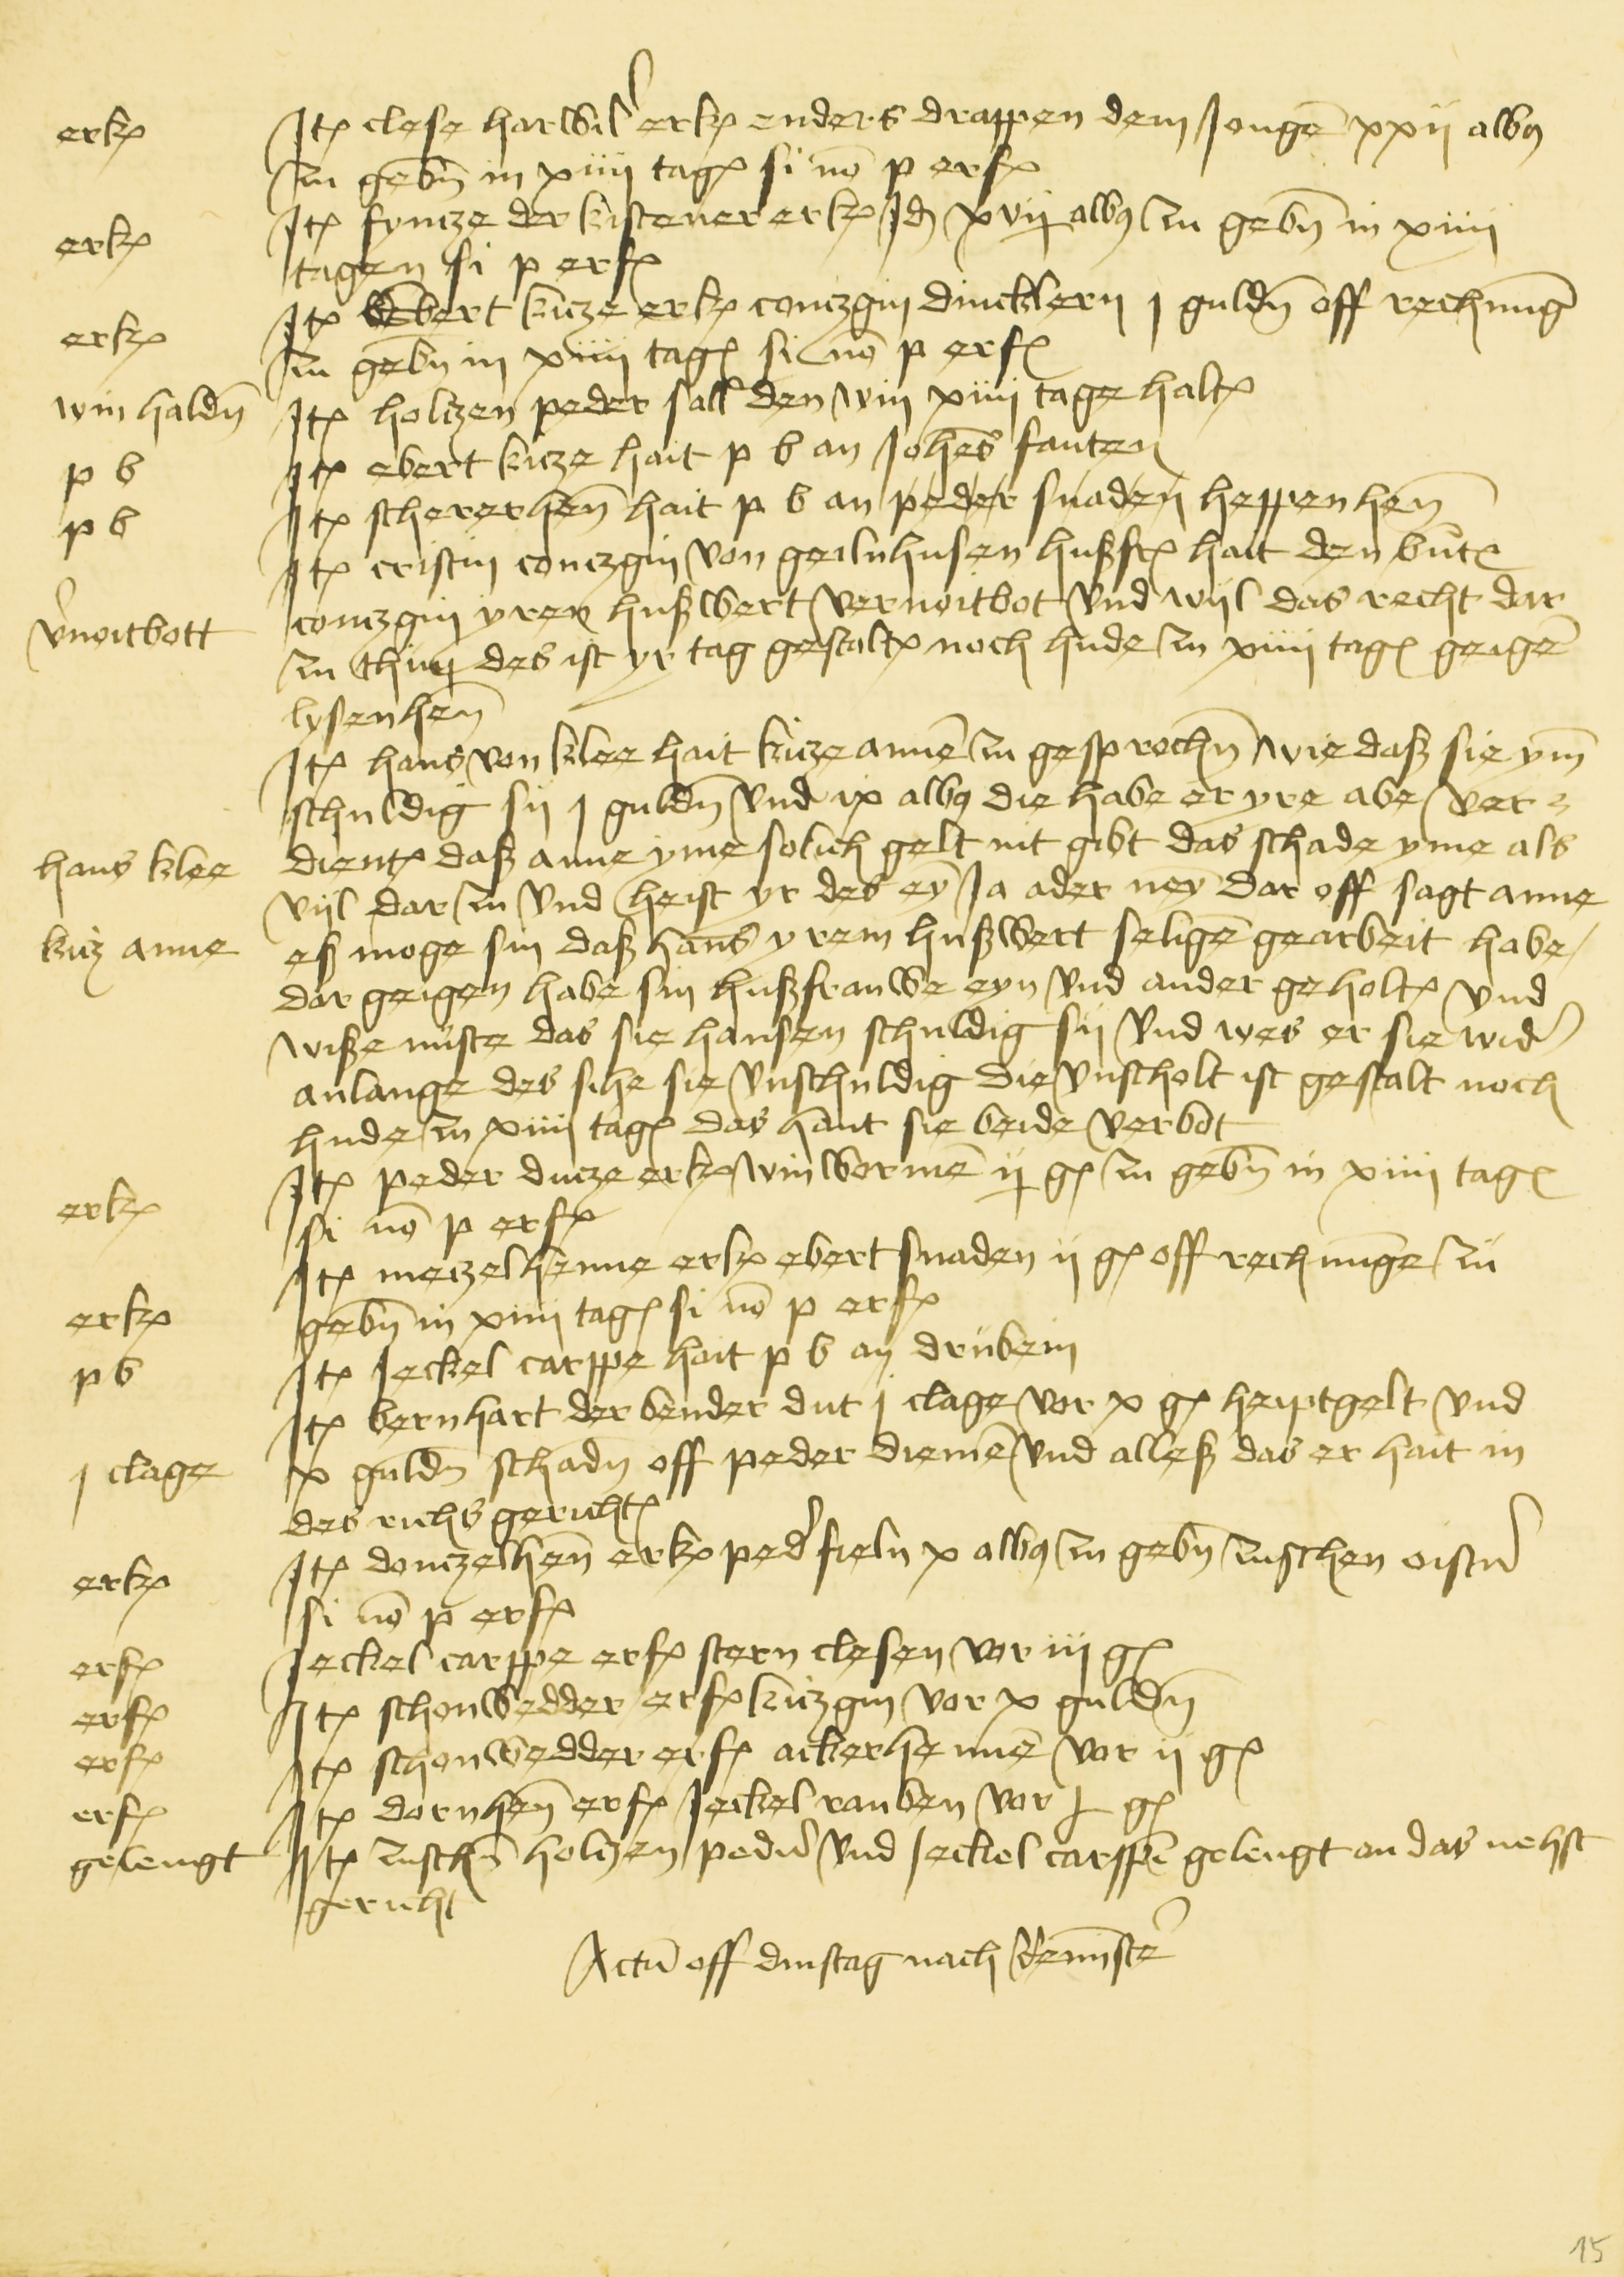 erk᷎ Jt᷎ clese harwil᷎ erk᷎ enders drappen dem Jongē xxij albꝫ
zu gebn̄ in xiiij tag᷎ si nō p erf᷎
erk᷎ Jt᷎ fyncze der kistener erk᷎ Jd᷎ xvij albꝫ zu gebn̄ in xiiij
tagen si p erf᷎
erk᷎ Jt᷎ Ebert kicze erk᷎ conczgin dincklern j guldn̄ off rechnūg
zu gebn̄ in xiiij tag᷎ si nō p erf᷎
win haldn̄ Jt᷎ holtzen peder sall den win xiiij tage halt᷎
p b Jt᷎ ebert kicze hait p b an Johēs fauten
p b Jt᷎ schererhen̄ hait p b an peder snaden heppenhen̄
Jt᷎ cristin conczgin von geilnhusen hußfr᷎ hait den but᷎
v᷎noitbott conczgin yren hußwert vernoitbot vnd wijl das recht dar
zu thun des ist yr tag gestalt᷎ noch hude zu xiiij tag᷎ geigē
lysenhen̄
Jt᷎ hans von klee hait kicze annē zu gesprochn̄ wie daß sie ym̄
schuldig sij j guldn̄ vnd ix albꝫ die habe er yre abe ver⸗
hans klee dient᷎ daß anne yme solich gelt nit gibt das schade yme als
vijl dar zu vnd heist yr des ey̅ Ja ader ney̅ dar off sagt anne
kicz anne eß moge sin daß hans yrem hußwert seligē gearbeit habe /
dar geigen habe sin hußfrauwe eyn vnd ander geholt᷎ vnd
wiße niiste das sie hansen schuldig sij vnd wes er sie wid᷎
anlange des sihe sie vnschuldig die vnscholt ist gestalt noch
hude zu xiiij tag᷎ das hant sie beide verbot
erk᷎ Jt᷎ peder ducze erk᷎ winwormē ij g᷎ zu gebn̄ in xiiij tag᷎
si nō p erf᷎
Jt᷎ meczelhenne erk᷎ ebert snaden ij g᷎ off rechnūge zu
erk᷎ gebn̄ in xiiij tag᷎ si nō p erf᷎
p b Jt᷎ Jeckel carppe hait p b an drubein
Jt᷎ bernhart der bender dut j clage vor x g᷎ heiptgelt vnd
j clage x guldn̄ schadn̄ off peder diemē vnd alleß das er hait in
des richs gericht᷎
erk᷎ Jt᷎ donczelhen̄ erk᷎ ped᷎ fieln x albꝫ zu gebn̄ zuschen oist᷎n
si nō p erf᷎
erf᷎ Jeckel carppe erf᷎ stern clesen vor iij g᷎
erf᷎ Jt᷎ schonwedder erf᷎ kiczgin vor x guldn̄
erf᷎ Jt᷎ schonwedder erf᷎ ackerhennē vor ij g᷎
erf᷎ Jt᷎ dornhen̄ erf᷎ Jeckel rauben vor j g᷎
gelengt Jt᷎ zuschn̄ holtzen ped᷎n vnd Jeckel carppē gelengt an das nehst
gericht
Actū off dinstag nach
15